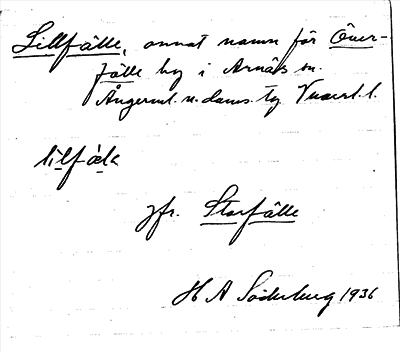 Lillfälle, annat namn för Över-
fälle by i Arnäs sn.
Ångerml. n. doms. tg Vnorrl. l.
lilfäla
jfr. Storfälle
H A Söderberg 1936